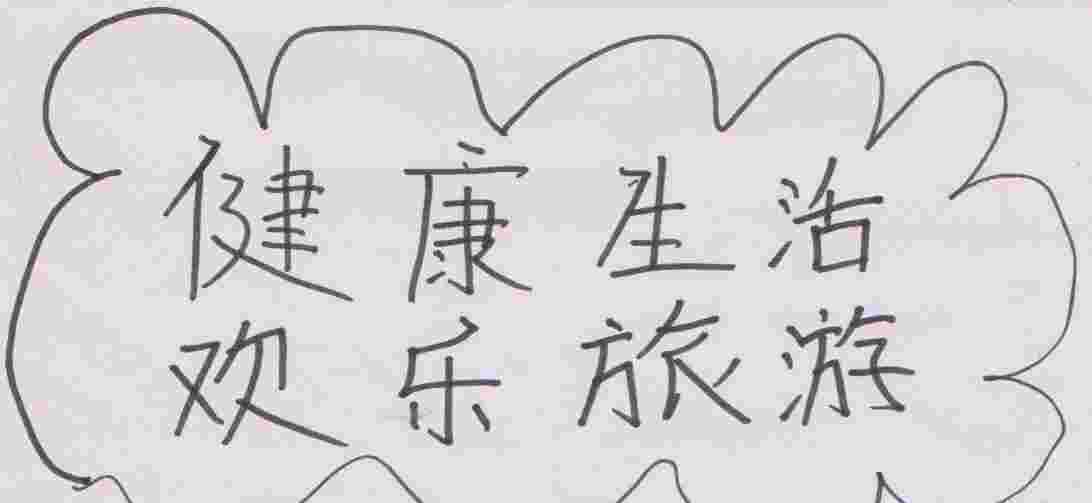 健康生活
欢乐旅游